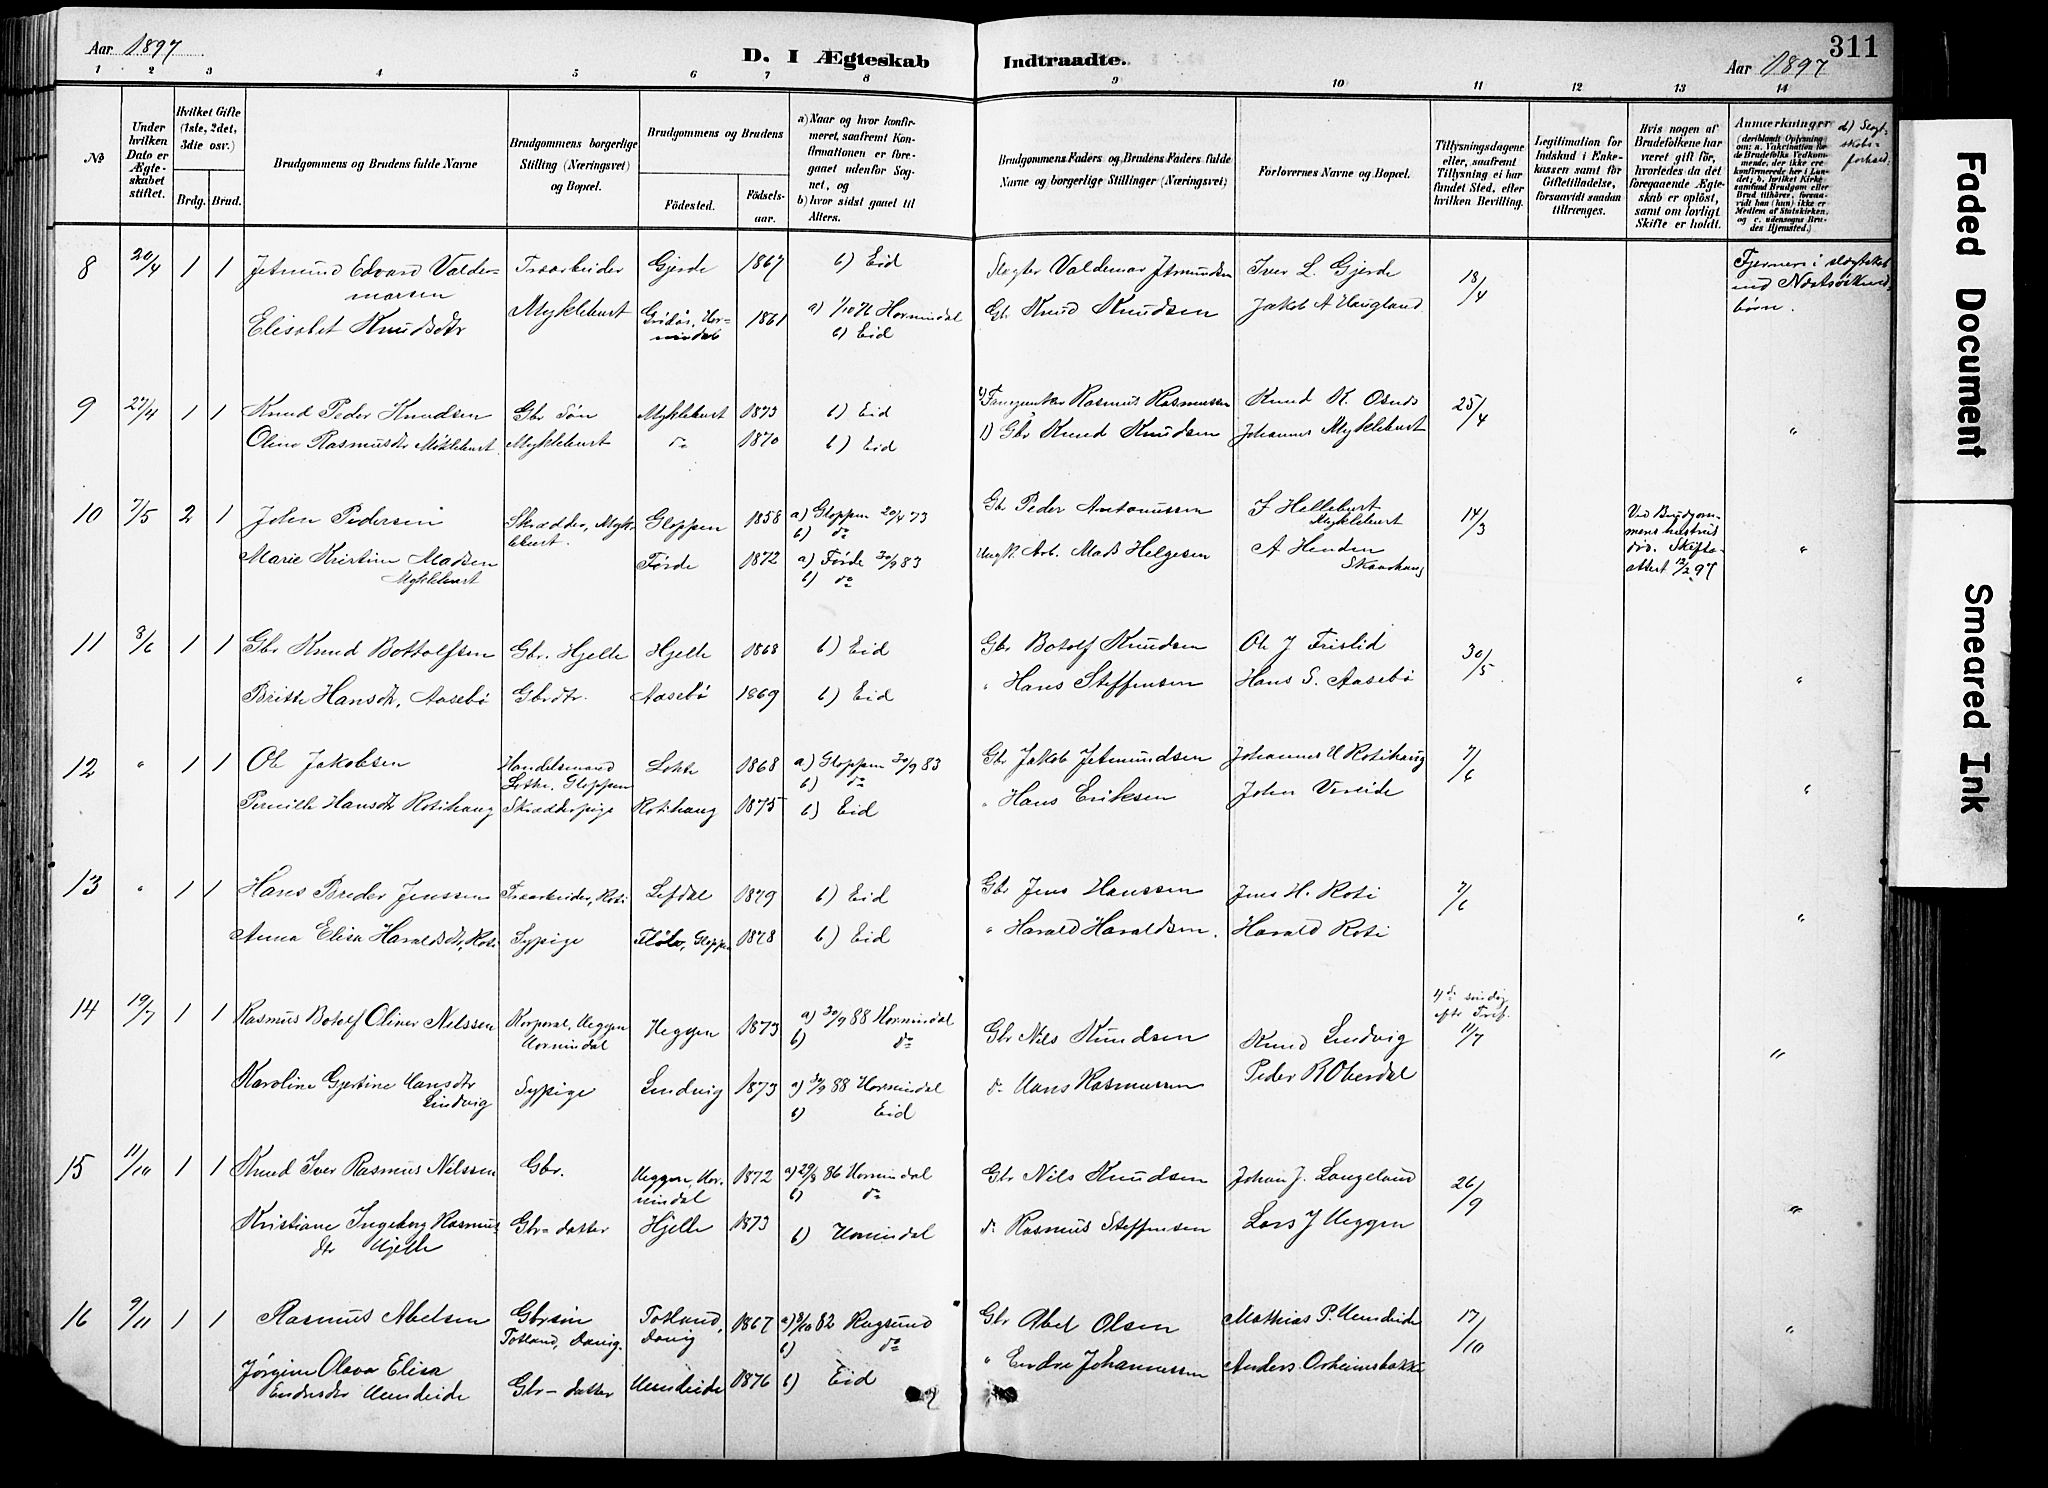 Aar 1897
D. I Ægteskab
Indtraadte.
Aar 1897
311
1 2 3 4 5 6 7 8 9 10 11 12 13 14
No
Under hvilken Dato er Ægteskabet stiftet.
Hvilket Gifte (1ste, 2det, 3die osv.)
Brdg. Brud.
Brudgommens og Brudens fulde Navne
Brudgommens borgerlige Stilling (Næringsvei) og Bopæl.
Brudgommens og Brudens
Fødested.
Fødsels-aar.
a) Naar og hvor konfirmeret, saafremt Konfirmationen er foregaaet udenfor Sognet, og
b) hvor sidst gaaet til Alters.
Brudgommens Faders og Brudens Faders fulde Navne og borgerlige Stillinger (Næringsvei)
Forlovernes Navne og Bopæl.
Tillysningsdagene eller, saafremt Tillysning ei har fundet Sted, efter hvilken Bevilling.
Legitimation for Indskud i Enkekassen samt for Giftetilladelse, forsaavidt saadan tiltrænges.
Hvis nogen af Brudefolkene har været gift før, hvorledes da det foregaaende Ægteskab er opløst, samt om lovligt Skifte er holdt.
Anmærkninger
(deriblandt Oplysning om: a. Vakcination for de Brudefolks Vedkommende, der ikke ere konfirmerede her i Landet; b. hvilket Kirkesamfund Brudgom eller Brud tilhører, forsaavidt han (hun) ikke er Medlem af Statskirken, og c. udensogns Brudes Hjemsted.)
d) Slegtskabsforhold
8 20/4 1 1 Jetmund Edvard Valdemarsen Træarbeider Gjerde 1867 b) Eid Valdemar Jetmundsen Iver L. Gjerde 18/4
Elisabet Knudsdtr Myklebust Hornindal 1861 a) Hornindal b) Eid Gbr Knud Knudsen Jakob A Haugland
Fjernere i slegtskab end Næstsøskendebørn.
9 27/4 1 1 Knud Peder Knudsen Gbr Søn Myklebust 1873 b) Eid Rasmus Rasmussen Knud K. Osnes 25/4
Oline Rasmusdtr Myklebust. Myklebust do 1870 b) Eid 1) Gbr Knud Knudsen Johannes Myklebust "
10 7/5 2 1 John Pedersen Skrædder, Myklebust. Gloppen 1858 a) Gloppen 20/4 73 b) do Gbr Peder Antonussen Hellebust Myklebust 14/3
Ved Brudgommens hustrus død. Skifteattest 12/2 97
Marie Kristine Madsen Myklebust Førde 1872 a) Førde 30/9 83 b) do Arb. Mads Helgesen A Henden Skaarhaug "
11 8/6 1 1 Gbr Knud Bottolfsen Gbr. Hjelle Hjelle 1868 b) Eid Gbr Botolf Knudsen Ole J Frislid 30/5
Britte Hansdtr, Aasebø Gbrdtr. Aasebø 1869 b) Eid " Hans Steffensen Hans S. Aasebø "
12 " 1 1 Ole Jakobsen Handelsmand Lothe, Gloppen Lothe 1868 a) Gloppen 30/9 83 b) do Gbr Jakob Jetmundsen Johannes H Rotihaug 7/6
Pernille Hansdtr Rotihaug Skrædderpige Rotihaug 1875 b) Eid " Hans Eriksen John Vereide "
13 " 1 1 Hans Breder Jenssen Træarbeider, Roti Lefdal 1879 b) Eid Gbr Jens Hanssen Jens H. Roti 7/6
Anna Elisa Haraldsdtr, Roti Sypige Gloppen 1878 b) Eid " Harald Haraldsen. Harald Roti "
14 19/7 1 1 Rasmus Botolf Oliver Nilssen Korporal, Heggen Hornindal Heggen 1873 a) 30/9 88 Hornindal b) do Gbr Nils Knudsen Knud Lindvig 4de søndag eftr Tref. 11/7
Karoline Gjertine Hansdtr Lindvig Sypige Lindvig 1873 a) 30/9 88 Hornindal b) Eid do Hans Rasmussen Peder R Oberdal "
15 11/10 1 1 Knud Iver Rasmus Nilssen Gbr. Heggen, Hornindal 1872 a) 29/8 86 Hornindal b) do Gbr Nils Knudsen Johan J. Langeland 26/9
Kristiane Ingeborg Rasmusdtr Hjelle Gbr-datter Hjelle 1873 b) Hornindal do Rasmus Steffensen Lars J Heggen "
16 9/11 1 1 Rasmus Abelsen Gbrsøn Totland, Davig. Totland, Davig 1867 a) 8/10 82 Rugsund b) do Gbr Abel Olsen Mathias P. Hundeide 17/10
Jørgine Olava Elisa Endresdtr Hundeide Gbr-datter Hundeide 1876 b) Eid " Endre Johannessen Anders Orheimsbakke "
Faded Document
Smeared Ink